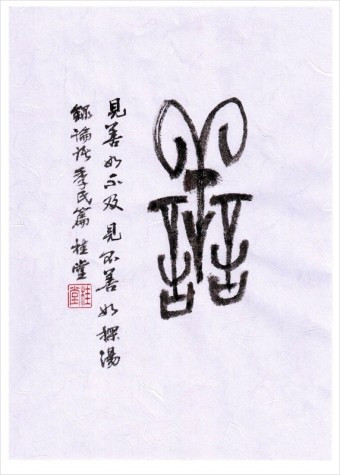 譱
見善如不及見不善如探湯
錄論語季氏篇 桂堂
桂堂